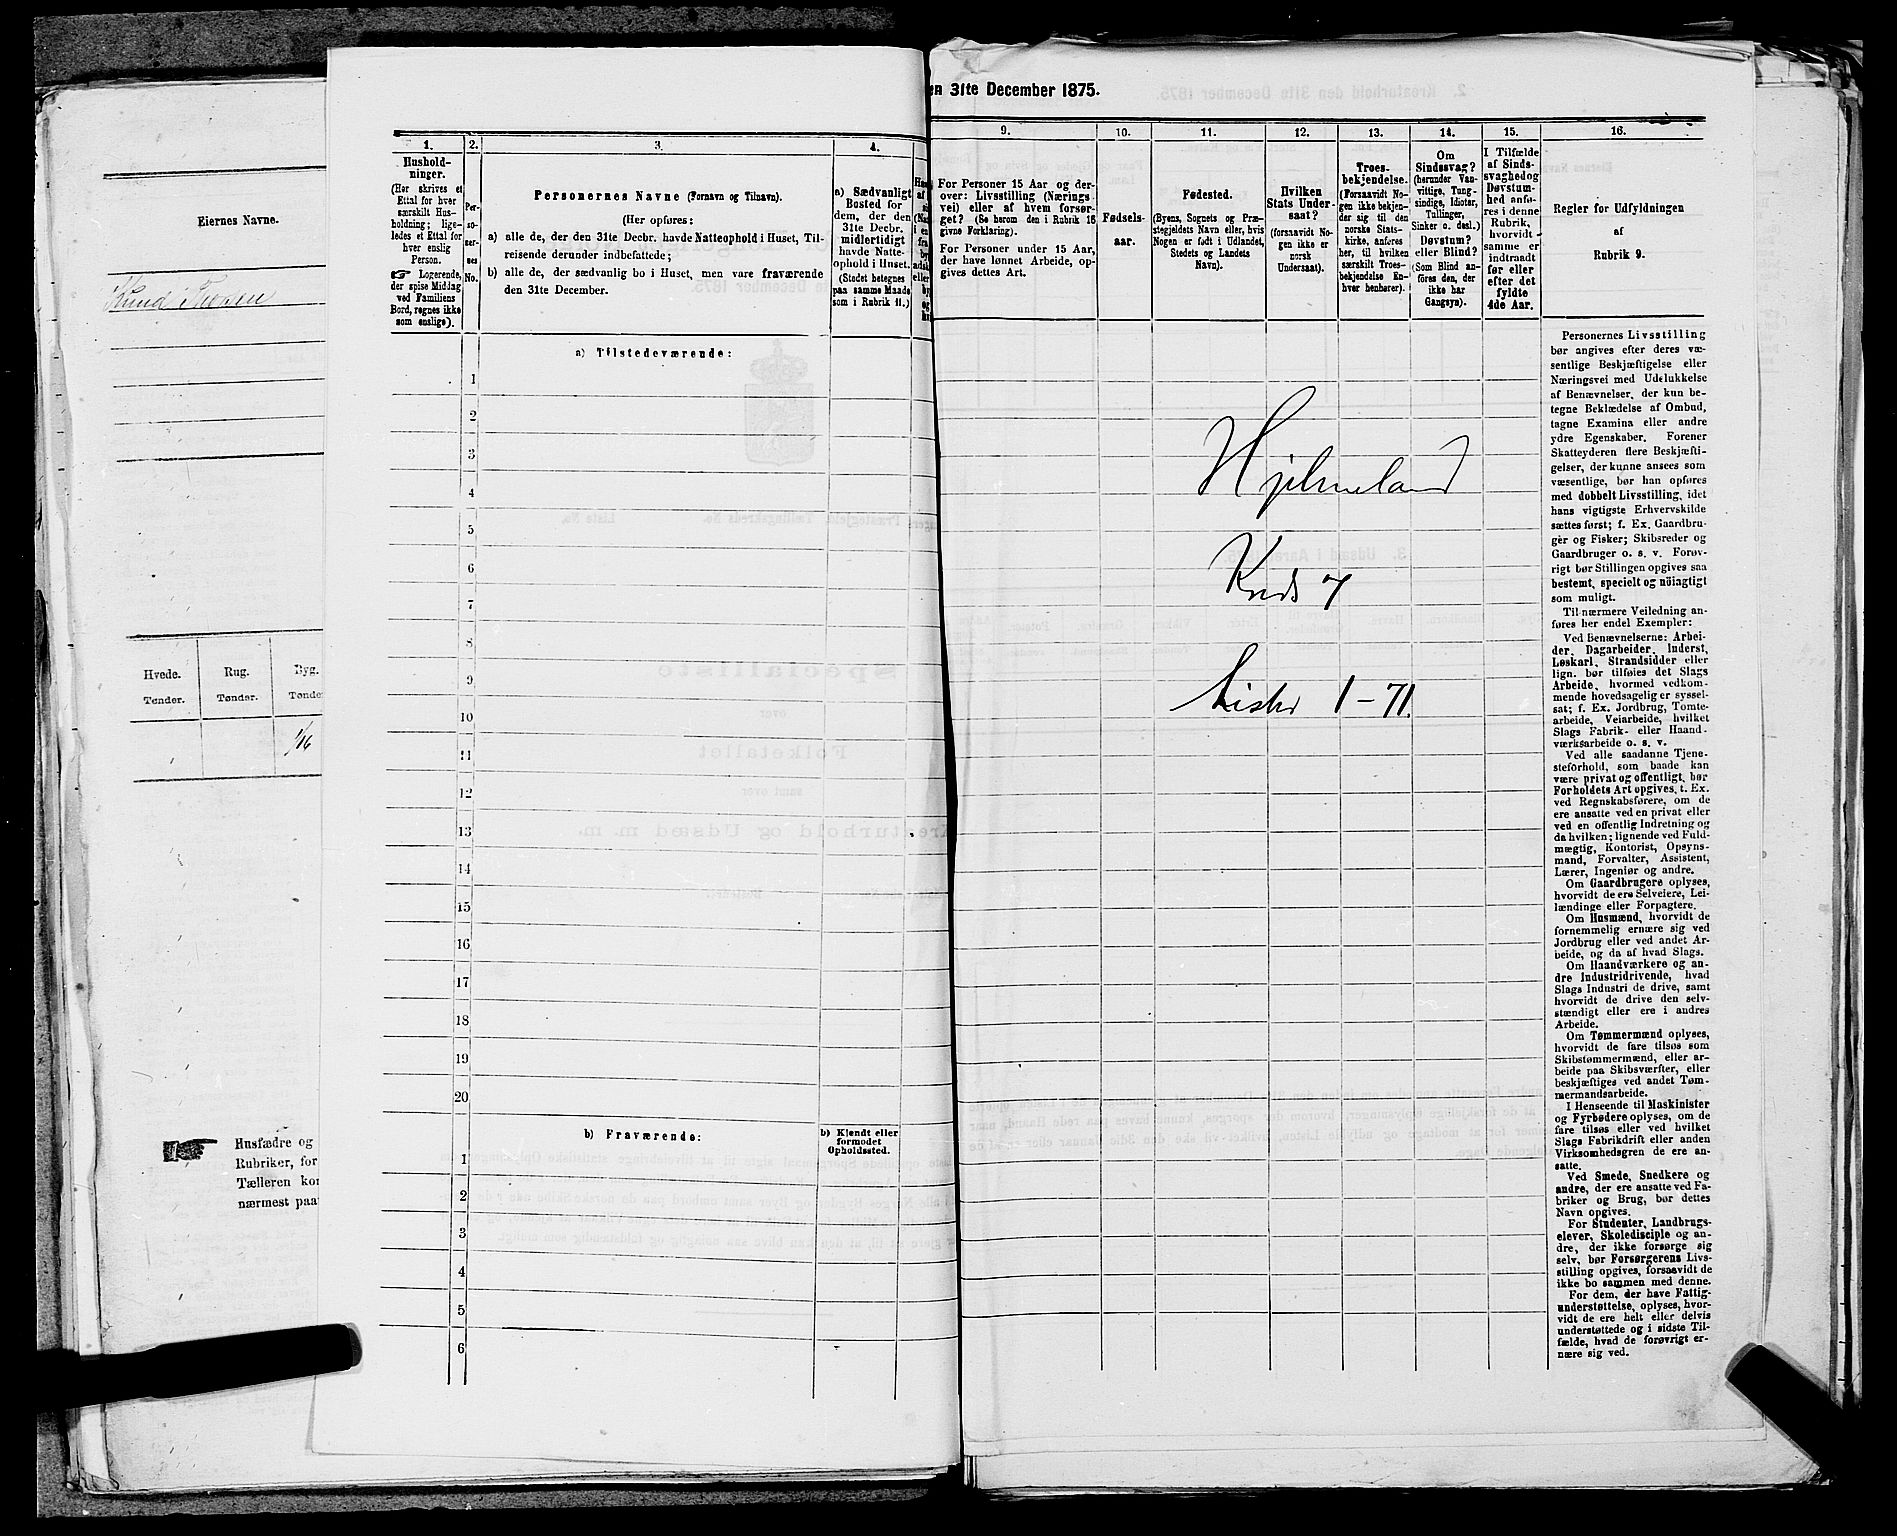 Eiernes Navne.
Knud Thoren
Hvede.
Tønder.
Rug.
Tønder.
Byg.
Tønder
1/16
Husfædre og
Rubriker, for
Tælleren kor
nærmest paa
1.
Hushold-
ninger.
(Her skrives et
Ettal for hver
særskilt Hus-
holdning; lige-
ledes et Ettal for
hver enslig
Person.
☞ Logerende,
der spise Middag
ved Familiens
Bord, regnes ikke
som enslige).
2.
Per-
so-
ner-
nes
No.
3.
Personernes Navne (Fornavn og Tilnavn).
(Her opføres:
a) alle de, der den 31te Decbr. havde Natteophold i Huset, Til-
reisende derunder indbefattede;
b) alle de, der sædvanlig bo i Huset, men vare fraværende
den 31te December.
4.
a) Sædvanligt
Bosted for
dem, der den
31te Decbr.
midlertidigt
havde Natte-
ophold i Huset.
(Stedet betegnes
paa samme Maade
som i Rubrik 11.)
a) Tilstedeværende:
1
2
3
4
5
6
7
8
9
10
11
12
13
14
15
16
17
18
19
20
b) Fraværende:
b) Kjendt eller
formodet
Opholdssted.
1
2
3
4
5
6
en 31te December 1875.
9.
For Personer 15 Aar og der-
over: Livsstilling (Nærings-
vei) eller af hvem forsør-
get? (Se herom den i Rubrik 16
givne Forklaring).
For Personer under 15 Aar,
der have lønnet Arbeide, op-
gives dettes Art.
10.
Fødsels-
aar.
11.
Fødested.
(Byens, Sognets og Præ-
stegjeldets Navn eller, hvis
Nogen er født i Udlandet,
Stedets og Landets
Navn).
12.
Hvilken
Stats Under-
saat?
(forsaavidt No-
gen ikke er
norsk
Undersaat).
13.
Troes-
bekjendelse.
(Forsaavidt No-
gen ikke bekjen-
der sig til den
norske Stats-
kirke, anføres
her, til hvilken
særskilt Troes-
bekjendelse En-
hver henhører).
14.
Om
Sindssvag?
(herunder Van-
vittige, Tung-
sindige, Idioter,
Tullinger,
Sinker o. desl.)
Døvstum?
eller Blind?
(Som Blind an-
føres den, der
ikke har
Gangsyn).
15.
I Tilfælde
af Sinds-
svaghed og
Døvstum-
hed anfø-
res i denne
Rubrik,
hvorvidt
samme er
indtraadt
før eller
efter det
fyldte
4de Aar.
16.
Regler for Udfyldningen
af
Rubrik 9.
Hjelmeland
Kreds 7
Lister 1-71.
Personernes Livsstilling
bør angives efter deres væ-
sentlige Beskjæftigelse eller
Næringsvei med Udelukkelse
af Benævnelser, der kun be-
tegne Beklædelse af Ombud,
tagne Examina eller andre
ydre Egenskaber. Forener
Skatteyderen flere Beskjæfti-
gelser, der kunne ansees som
væsentlige, bør han opføres
med dobbelt Livsstilling, idet
hans vigtigste Erhvervskilde
sættes først; f. Ex. Gaardbru-
ger og Fisker; Skibsreder og
Gaardbruger o. s. v. Forøv-
rigt bør Stillingen opgives saa
bestemt, specielt og nöiagtigt
som muligt.
Til nærmere Veiledning an-
føres her endel Exempler:
Ved Benævnelserne: Arbei-
der, Dagarbeider, Inderst,
Løskarl, Strandsidder eller
lign. bør tilføies det Slags
Arbeide, hvormed vedkom-
mende hovedsagelig er syssel-
sat; f. Ex. Jordbrug, Tomte-
arbeide, Veiarbeide, hvilket
Slags Fabrik- eller Haand-
værksarbeide o. s. v.
Ved alle saadanne Tjene-
steforhold, som baade kan
være privat og offentligt, bør
Forholdets Art opgives, t. Ex.
ved Regnskabsførere, om de
ere ansatte ved en privat eller
ved en offentlig Indretning og
da hvilken; lignende ved Fuld-
mægtig, Kontorist, Opsyns-
mand, Forvalter, Assistent,
Lærer, Ingeniør og andre.
Om Gaardbrugere oplyses,
hvorvidt de ere Selveiere, Lei-
lændinge eller Forpagtere.
Om Husmænd, hvorvidt de
fornemmelig ernære sig ved
Jordbrug eller ved andet Ar-
beide, og da af hvad Slags.
Om Haandværkere og an-
dre Industridrivende, hvad
Slags Industri de drive, samt
hvorvidt de drive den selv-
stændigt eller ere i andres
Arbeide.
Om Tømmermænd oplyses,
hvorvidt de fare tilsøs som
Skibstømmermænd, eller ar-
beide paa Skibsværfter, eller
beskjæftiges ved andet Tøm-
mermandsarbeide.
I Henseende til Maskinister
og Fyrbødere oplyses, om de
fare tilsøs eller ved hvilket
Slags Fabrikdrift eller anden
Virksomhedsgren de ere an-
satte.
Ved Smede, Snedkere og
andre, der ere ansatte ved Fa-
briker og Brug, bør dettes
Navn opgives.
For Studenter, Landbrugs-
elever, Skoledisciple og an-
dre, der ikke forsørge sig
selv, bør Forsørgerens Livs-
stilling opgives, forsaavidt de
ikke bo sammen med denne.
For dem, der have Fattig-
understøttelse, oplyses, hvor-
vidt de ere helt eller delvis
understøttede og i sidste Til-
fælde, hvad de forøvrigt er-
nære sig ved.